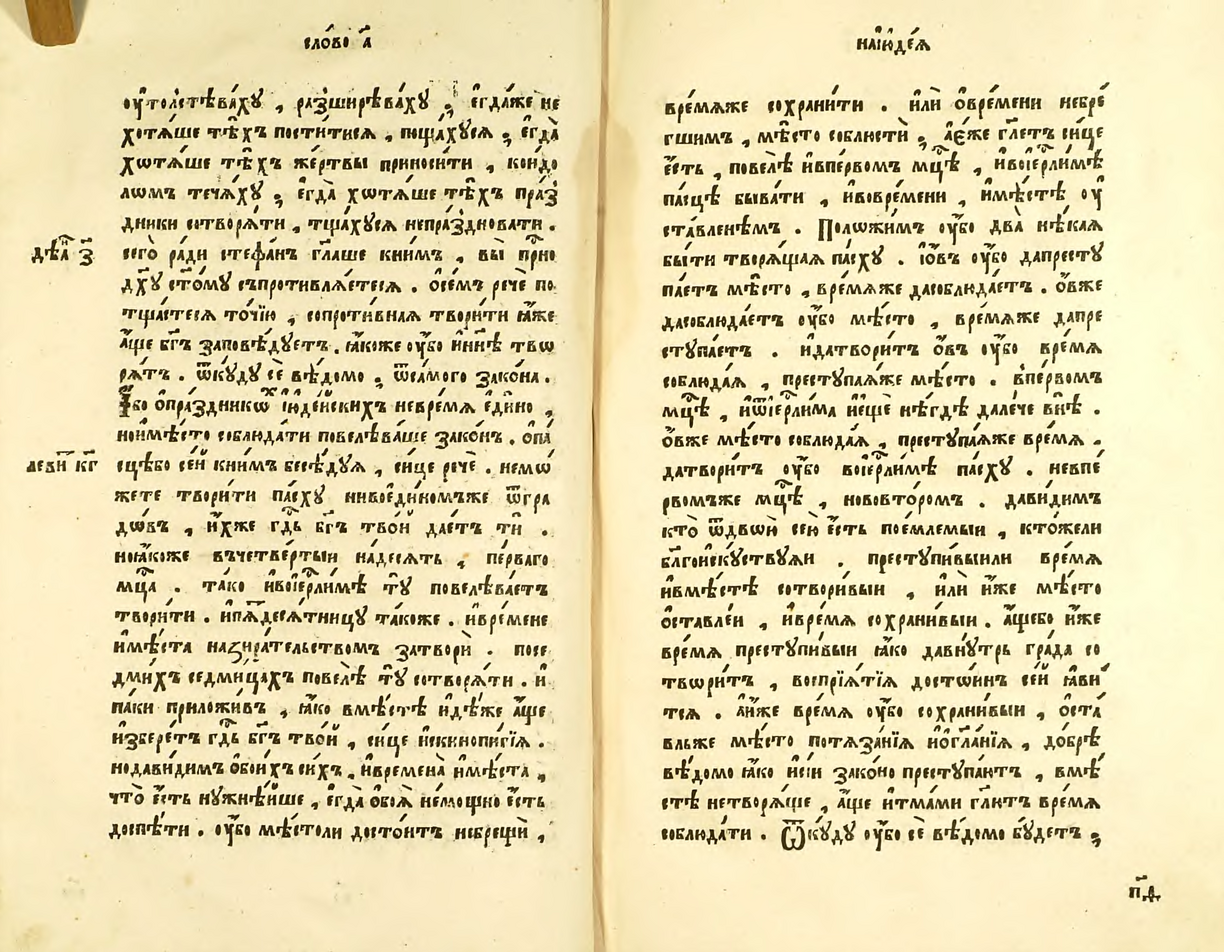 сло́во а҃
ᲂу҆толстѣва́хꙋ , разширѣва́хꙋ ; є҆гда́же не
хотѧ́ше тѣ́хъ пости́тисѧ , поща́хꙋсѧ ; є҆гда̀
хѡтѧ́ше тѣ́хъ же́ртвы приноси́ти , коидо
лѡмъ теча́хꙋ ; є҆гда̀ хѡтѧ́ше тѣ́хъ пра́з
дники сотворѧ́ти , тща́хꙋсѧ непра́здновати .
дѣꙗ҃ з҃
сего̀ ра́ди стефа́нъ гл҃аше книмъ , вы̀ при́сно
дх҃ꙋ ст҃омꙋ съпротивлѧ́етесѧ . ѻ҆се́мъ речѐ по
тща́стесѧ то́чїю , сопроти́внаѧ твори́ти ꙗ҆́же
а҆́ще бг҃ъ заповѣ́дꙋетъ . ꙗ҆́коже ᲂу҆́бо и҆нн҃ѣ твѡ
рѧ́тъ . ѿкꙋ́дꙋ сѐ вѣ́домо ; ѿсамого зако́на .
И҆́бо ѻ҆пра́здникѡⷯ і҆ꙋде́йскихъ невре́мѧ є҆ди́но ,
ноимѣ́сто соблюда́ти повелѣва́ше зако́нъ . ѻ҆па́
леви́ⷮ кг҃
сцѣ́бо се́й книмъ бесѣ́дꙋѧ , си́це речѐ . немѡ́
жете твори́ти па́схꙋ нивоеди́номъже ѿгра
дѡ́въ , и҆́хже гд҇ь бг҃ъ тво́й да́стъ тѝ .
ноꙗ҆́коже въчетве́ртыи на́десѧть , пе́рваго
мц҇а . та́ко и҆воі҆ер҇лимѣ тꙋ̀ повелѣва́етъ
твори́ти . и҆пѧⷮдесѧ́тницꙋ та́коже . и҆вре́мене
и҆мѣ́ста назира́тельствомъ затворѝ . посе
дми́хъ седми́цахъ повелѣ̀ тꙋ̀ сотворѧ́ти . и҆
па́ки приложи́въ , ꙗ҆́ко вмѣ́стѣ и҆дѣ́же а҆́ще
и҆збере́тъ гд҇ь бг҃ъ тво́й , си́це и҆скинопи́гїѧ .
нодави́димъ ѻ҆бо́ихъ си́хъ , и҆времена̀ и҆мѣ́ста ,
что̀ є҆́сть нꙋжнѣ́йше , є҆гда̀ ѻ҆боѧ̀ немощно є҆́сть
доспѣ́ти . ᲂу҆́бо мѣ́столи досто́итъ небрещѝ ,
наі҆ꙋде́ѧ
вре́мѧже сохрани́ти . и҆лѝ ѻ҆вре́мени небре́
гшимъ , мѣ́сто соблюстѝ ; а҆є҆́же гл҃етъ си́це
є҆́сть , повелѣ̀ и҆впе́рвомъ мц҇ѣ , и҆воі҆ер҇лимѣ
па́сцѣ быва́ти , и҆вовре́мени , и҆мѣ́стѣ ᲂу҆
ста́вленѣмъ . Поло́жимъ ᲂу҆́бо два̀ нѣ́каѧ
бы́ти творѧ́щаѧ па́схꙋ . і҆ѻ҆́въ ᲂу҆́бо дапрестꙋ
па́етъ мѣ́сто , вре́мѧже дасоблюда́етъ . ѻ҆́вже
дасоблюда́етъ ᲂу҆́бо мѣ́сто , вре́мѧже дапре
стꙋпа́етъ . и҆датвори́тъ ѻ҆́въ ᲂу҆́бо вре́мѧ
соблюда́ѧ , престꙋпа́ѧже мѣ́сто . впе́рвомъ
мц҇ѣ , и҆ѿі҆ер҇лима и҆ещѐ нѣ́гдѣ дале́че внѣ̀ .
ѻ҆́вже мѣ́сто соблюда́ѧ , престꙋпа́ѧже вре́мѧ .
датвори́тъ ᲂу҆́бо воі҆ер҇лимѣ па́схꙋ . невпе́
рвомъже мц҇ѣ , нововторо́мъ . дави́димъ
кто̀ ѿдвѡ́й се́ю є҆́сть пое́млемыи , кто́жели
бл҃гоискꙋ́ствꙋѧи . престꙋпи́выили вре́мѧ
и҆вмѣ́стѣ сотвори́выи , и҆лѝ и҆́же мѣ́сто
ѻ҆ста́влеи , и҆вре́мѧ сохрани́выи . а҆́щебо и҆́же
вре́мѧ престꙋпи́выи ꙗ҆́ко давнꙋ́трь гра́да со
твѡри́тъ , воспрїѧ́тїѧ досто́инъ се́й ꙗ҆ви́
тсѧ . а҆и҆́же вре́мѧ ᲂу҆́бо сохрани́выи , ѻ҆ста́
вльже мѣ́сто потѧза́нїѧ и҆ѻ҆гла́нїѧ , до́брѣ
вѣ́домо ꙗ҆́ко и҆сі́и зако́но престꙋпа́ютъ , вмѣ́
стѣ нетворѧ́ще , а҆́ще и҆тма́ми гл҃ютъ вре́мѧ
соблюда́ти . Ѿкꙋ́дꙋ ᲂу҆́бо сѐ вѣ́домо бꙋ́детъ ;
пд҃